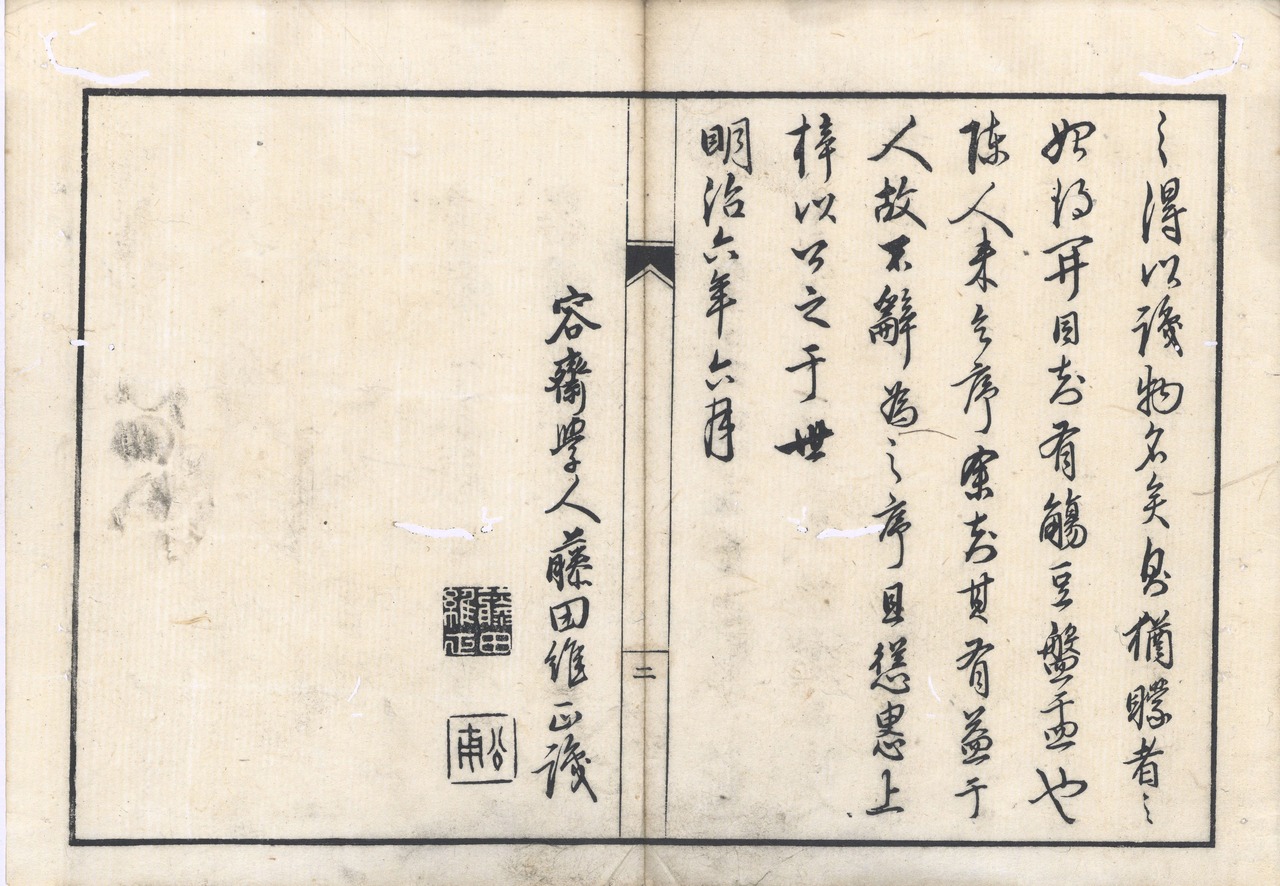 之得以識物名矣猶矇者之
始得開目知有觴豆盤盂也
陳人来乞序宷知其有益于
人故不辭為之序且慫慂上
梓以公之于世
明治六年六月
二
容齋學人藤田維正識
藤田維正
公甫